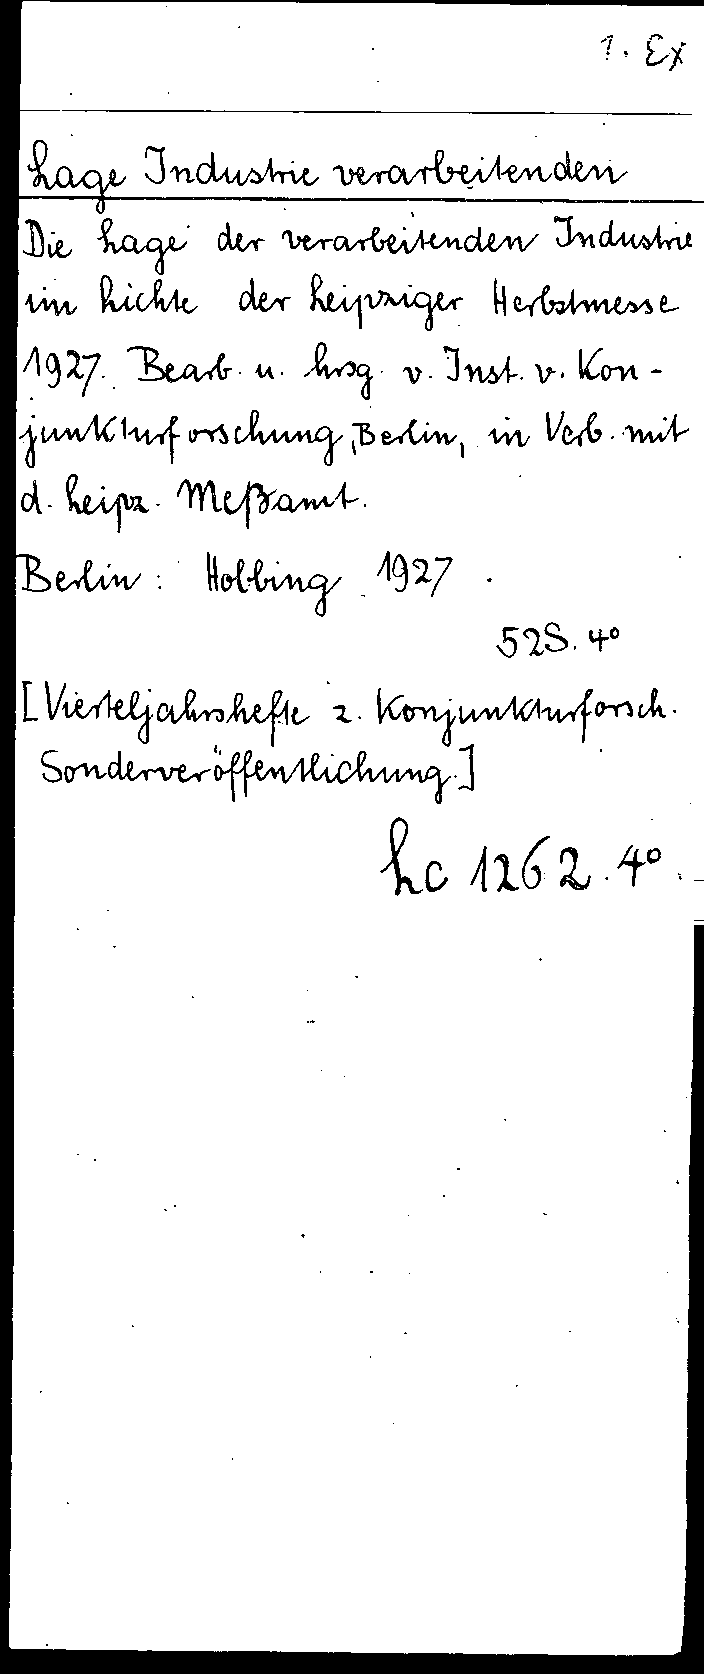 1. Ex
Lage Industrie verarbeitenden
Die Lage der verarbeitenden Industrie
im Lichte der Leipziger Herbstmesse
1927. Bearb. u. hrsg. v. Inst. v. Kon-
junkturforschung, Berlin, in Verb. mit
d. Leipz. Meßamt.
Berlin: Hobbing 1927.
52S. 4°
[Vierteljahrshefte z. Konjunkturforsch.
Sonderveröffentlichung.]
Lc 1262. 4°.